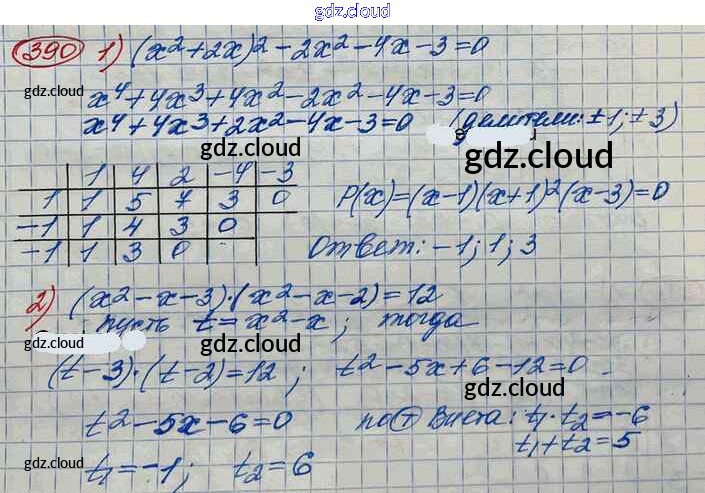 gdz.cloud
390 1) (x² + 2x)² - 2x² - 4x - 3 = 0
gdz.cloud
x⁴ + 4x³ + 4x² - 2x² - 4x - 3 = 0
x⁴ + 4x³ + 2x² - 4x - 3 = 0 (делители: ±1; ±3)
gdz.cloud
gdz.cloud
1 4 2 -4 -3
1 1 5 7 3 0
-1 1 4 3 0
-1 1 3 0
P(x) = (x-1)(x+1)²(x-3) = 0
gdz.cloud
gdz.cloud
Ответ: -1; 1; 3
2) (x² - x - 3)·(x² - x - 2) = 12
gdz.cloud
пусть t = x² - x; тогда
gdz.cloud
gdz.cloud
(t - 3)·(t - 2) = 12; t² - 5x + 6 - 12 = 0
gdz.cloud
t² - 5x - 6 = 0 по Т Виета: t₁·t₂ = -6
t₁ + t₂ = 5
gdz.cloud
t₁ = -1; t₂ = 6
gdz.cloud